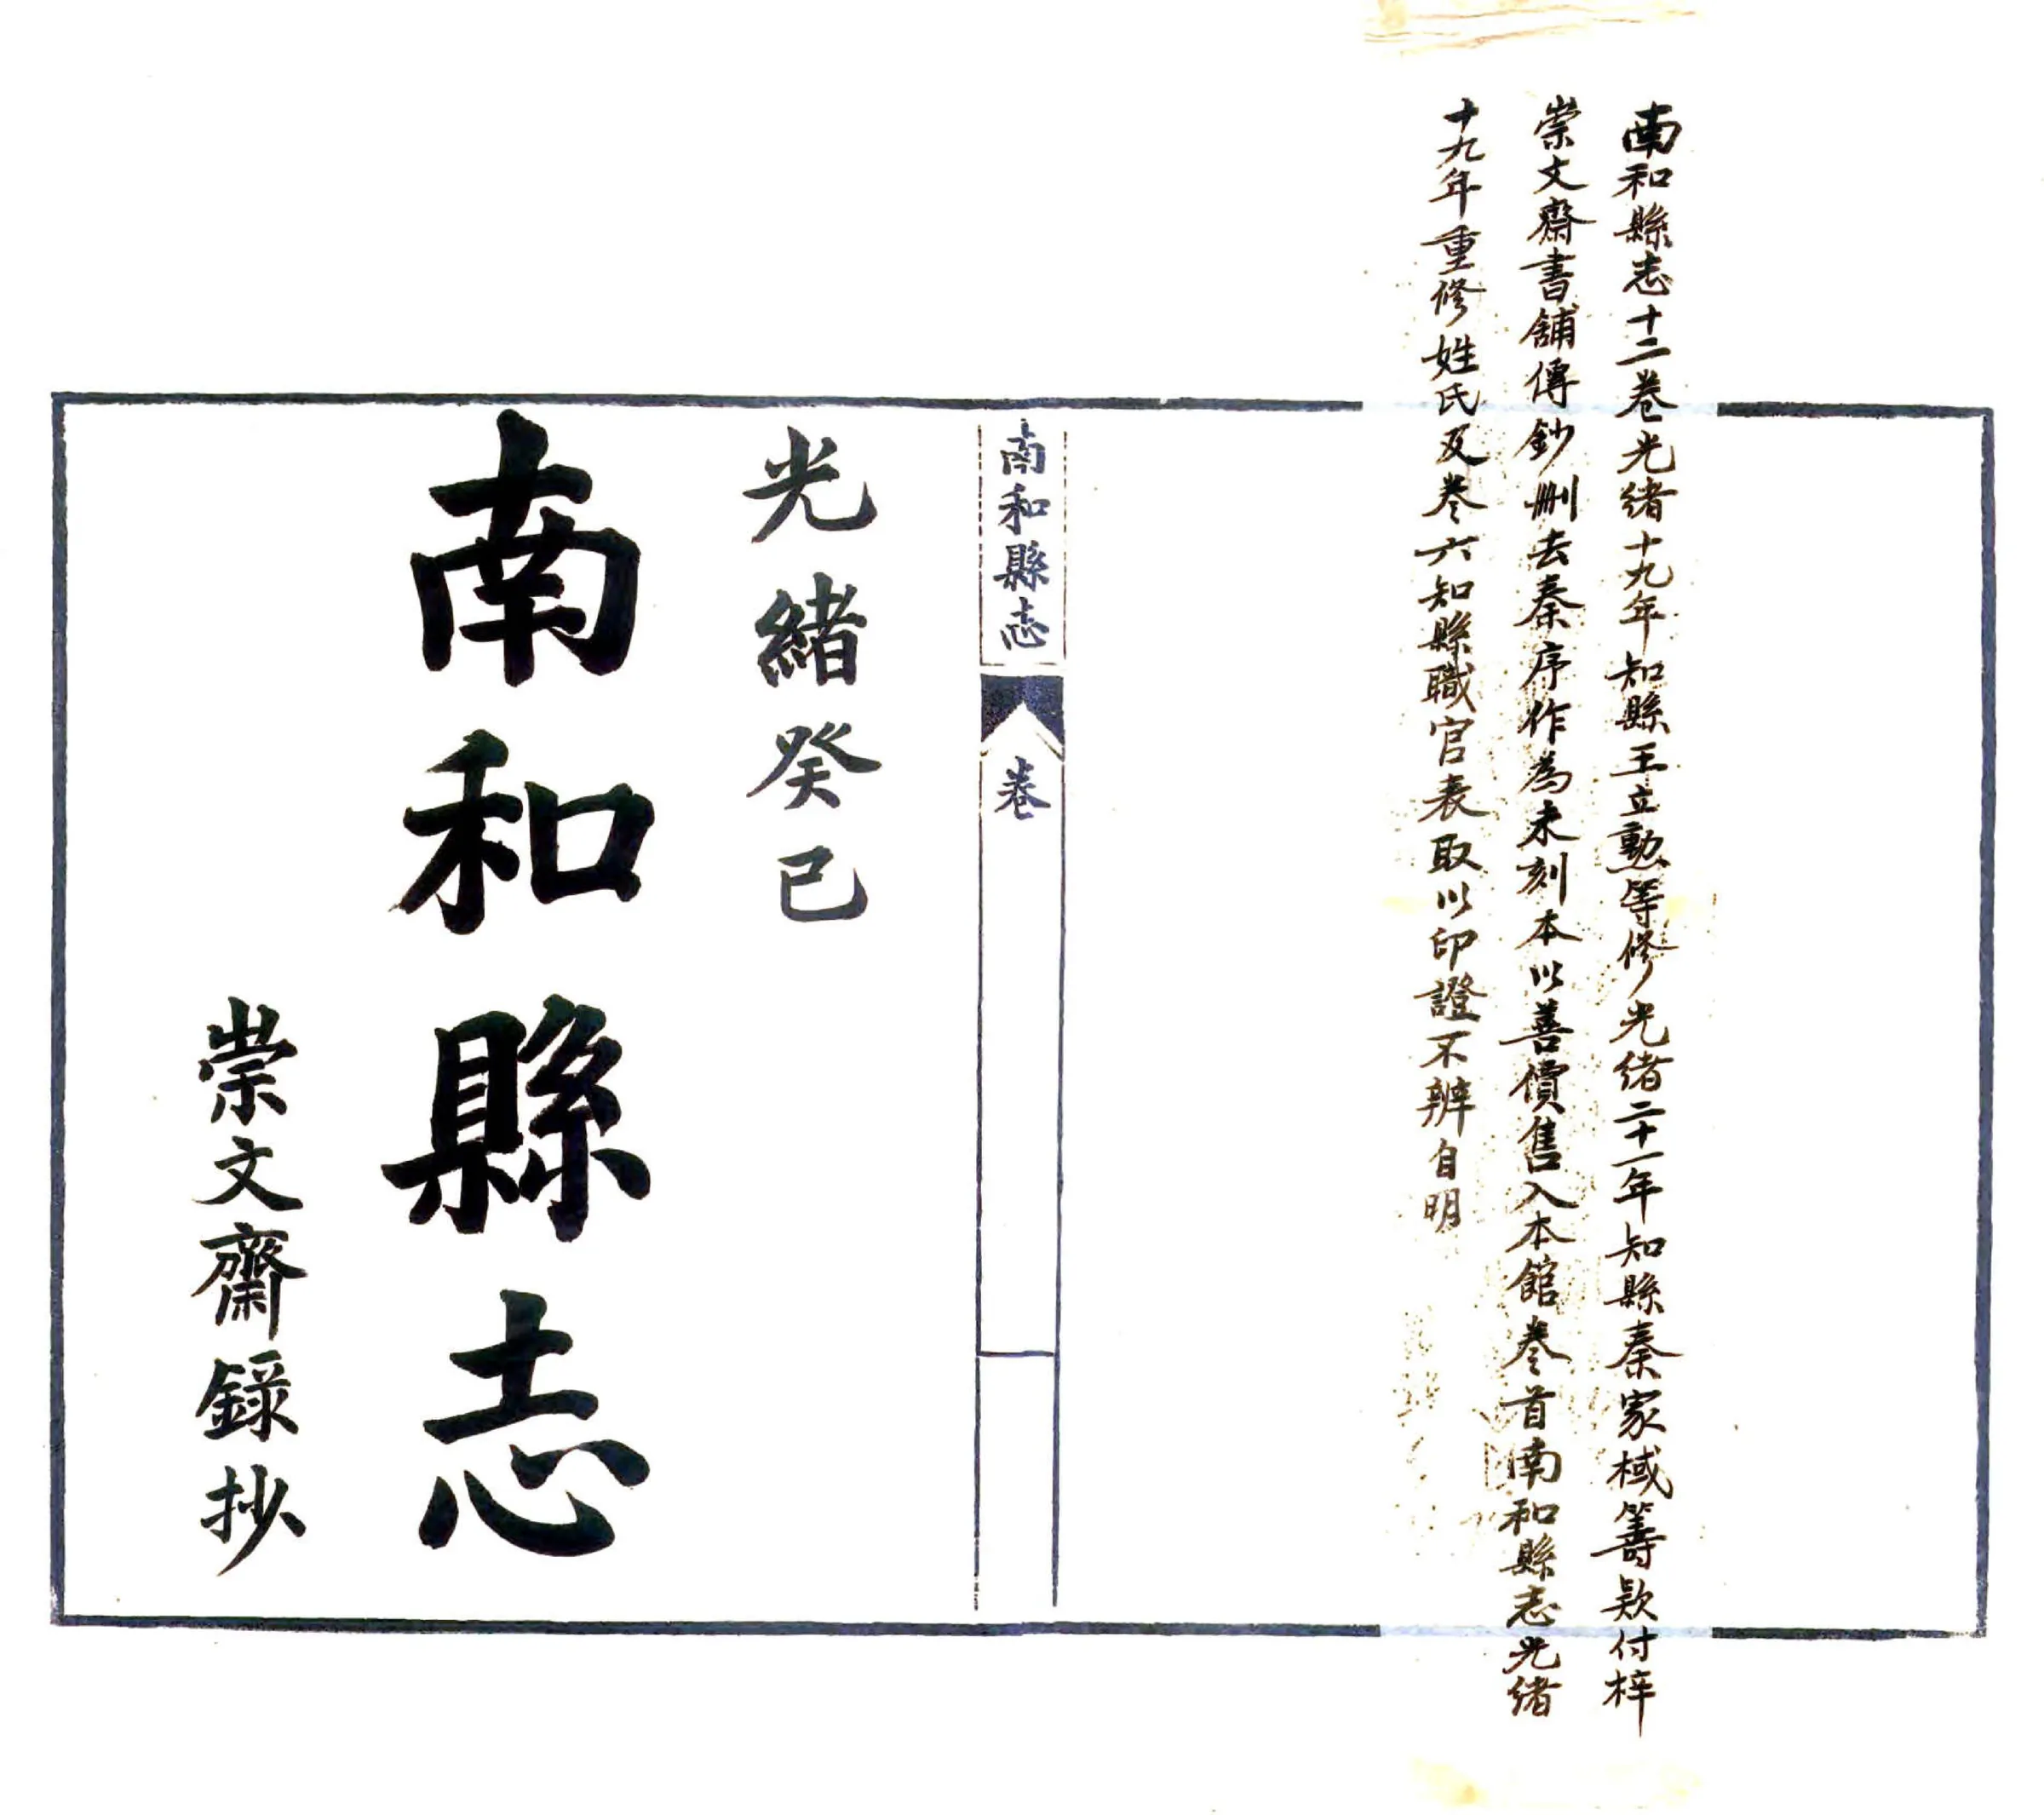 南和縣志十二卷光緒十九年知縣王立勳等修光緒二十一年知縣秦家棫籌款付梓
崇文齋書舖傳鈔刪去秦序作為未刻本以善價售入本館卷首南和縣志光緒
十九年重修姓氏及卷六知縣職官表取以印證不辨自明
南和縣志
卷
光緒癸巳
南和縣志
崇文齋錄抄